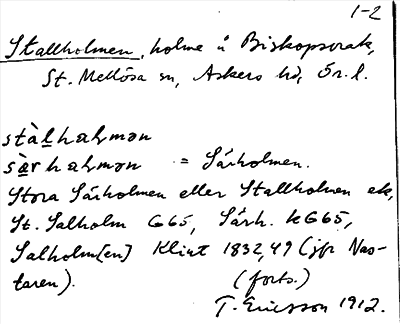 1-2
Stallholmen, holme å Biskopsvrak,
St. Mellösa sn, Askers hd, Ör. l.
stàlhalmən
sàrhalmən = Sårholmen.
Stora Sårholmen eller Stallholmen ek,
St. Salholm G65, Sårh. kG65,
Salholm[en] Klint 1832,49 (jfr Nas-
taren). (forts.)
T. Ericsson 1912.